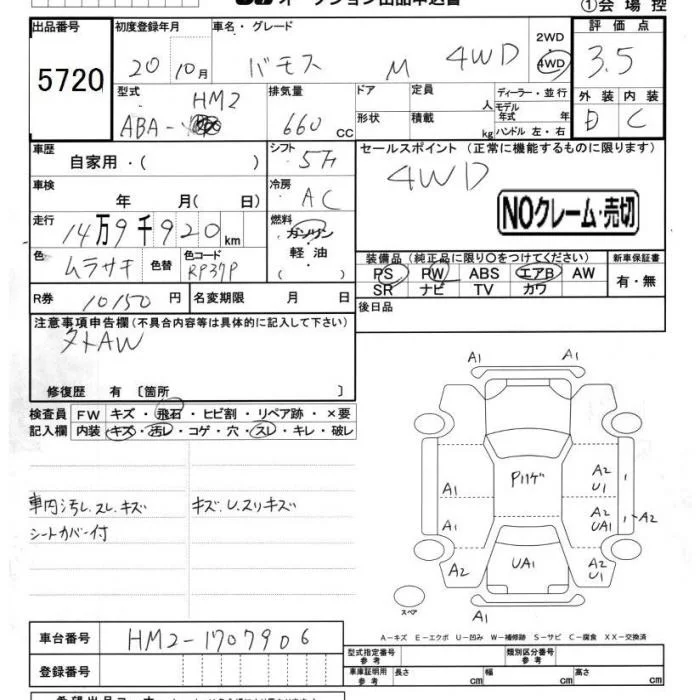 オークション出品申込書
①会場控
出品番号 5720
初度登録年月 20 10月
車名・グレード バモス M 4WD
2WD
4WD
評価点 3.5
外装 D 内装 C
型式 ABA- HM2
排気量 660 CC
ドア 形状
定員 人
積載 kg
ディーラー・並行
モデル年式 年
ハンドル 左・右
車歴 自家用・( )
シフト 5F
セールスポイント (正常に機能するものに限ります)
4WD
車検 年 月( 日)
冷房 AC
NOクレーム・売切
走行 14万9千920km
燃料 ガソリン
軽油
( )
色 ムラサキ 色替 色コード RP37P
装備品 (純正品に限り〇をつけてください)
PS PW ABS エアB AW
SR ナビ TV カワ
新車保証書
有・無
R券 10150円 名変期限 月 日
後日品
注意事項申告欄(不具合内容等は具体的に記入して下さい)
タトAW
修復歴 有 〔箇所 〕
検査員 FW キズ・飛石・ヒビ割・リペア跡・×要
記入欄 内装 キズ・汚レ・コゲ・穴・スレ・キレ・破レ
車内汚レ.スレ.キズ
キズ.U.スリキズ
シートカバー付
A1 A1
Pハゲ
A2 U1
A1
A1
A2 UA1
A2
A2
UA1
A2 U1
スペア
A1
A-キズ E-エクボ U-凹み W-補修跡 S-サビ C-腐食 XX-交換済
車台番号 HM2-1707906
登録番号
型式指定番号 参考
類別区分番号 参考
車庫証明用 参考 長さ cm 幅 cm 高さ cm